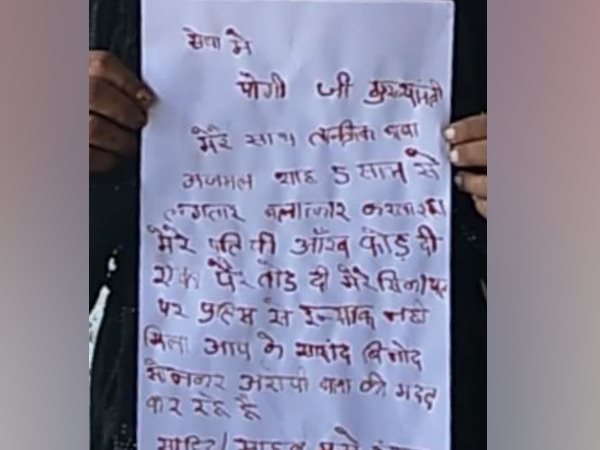 सेवा मे
योगी जी मुख्यमंत्री
मेरे साथ तंत्रीक बाबा
अजमल शाह 5 साल से
लगातार बलात्कार करता रहा
मेरे पति की आँख फोड़ दी
एक पैर तोड़ दी मेरे
पर पुलिस से इन्साफ नही
मिला आप के सांसद बिनोद
सोनकर अरोपी बाबा की मदद
कर रहे है